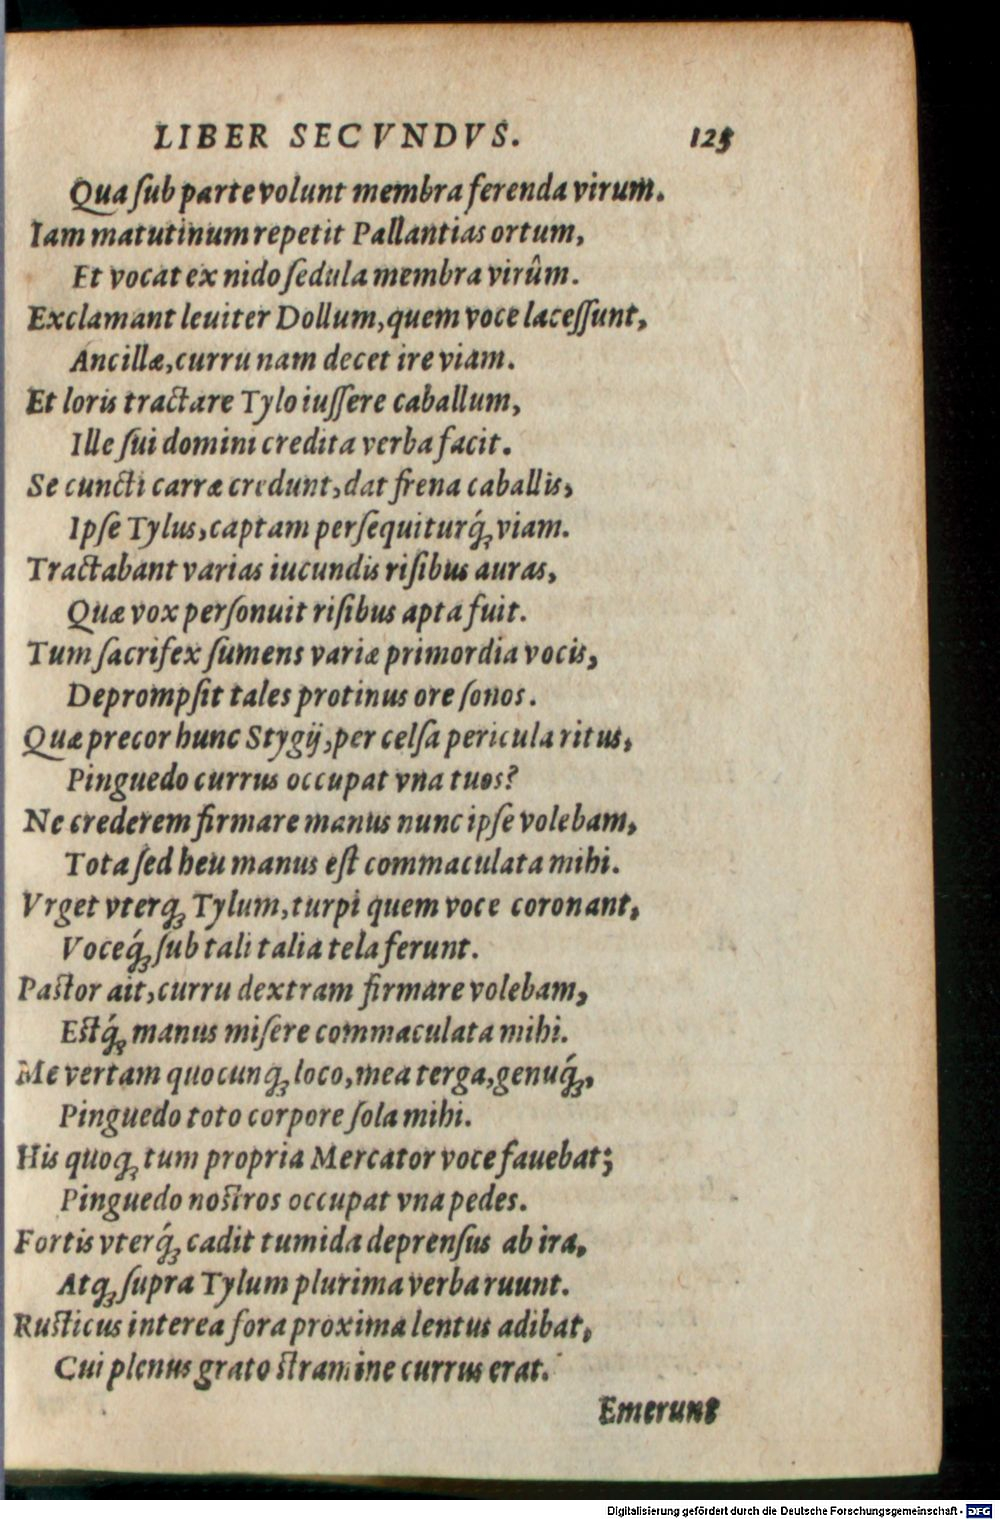 LIBER SECVNDVS. 125
Qua ſub parte volunt membra ferenda virum.
Iam matutinum repetit Pallantias ortum,
Et vocat ex nido ſedula membra virûm.
Exclamant leuiter Dollum, quem voce laceſſunt,
Ancillæ, curru nam decet ire viam.
Et loris tractare Tylo iuſſere caballum,
Ille ſui domini credita verba facit.
Se cuncti carræ credunt, dat frena caballis,
Ipſe Tylus, captam perſequiturq́ꝫ viam.
Tractabant varias iucundis riſibus auras,
Quæ vox perſonuit riſibus apta fuit.
Tum ſacrifex ſumens variæ primordia vocis,
Deprompſit tales protinus ore ſonos.
Quæ precor hunc Stygij, per celſa pericula ritus,
Pinguedo currus occupat vna tuos?
Ne crederem firmare manus nunc ipſe volebam,
Tota ſed heu manus eſt commaculata mihi.
Vrget vterqꝫ Tylum, turpi quem voce coronant,
Voceq́ꝫ ſub tali talia tela ferunt.
Paſtor ait, curru dextram firmare volebam,
Eſtq́ꝫ manus miſere commaculata mihi.
Me vertam quocunqꝫ loco, mea terga, genuq́ꝫ,
Pinguedo toto corpore ſola mihi.
His quoqꝫ tum propria Mercator voce fauebat;
Pinguedo noſtros occupat vna pedes.
Fortis vterq́ꝫ cadit tumida deprenſus ab ira,
Atqꝫ ſupra Tylum plurima verba ruunt.
Ruſticus interea fora proxima lentus adibat,
Cui plenus grato ſtramine currus erat.
Emerunt
Digitalisierung gefördert durch die Deutsche Forschungsgemeinschaft - DFG